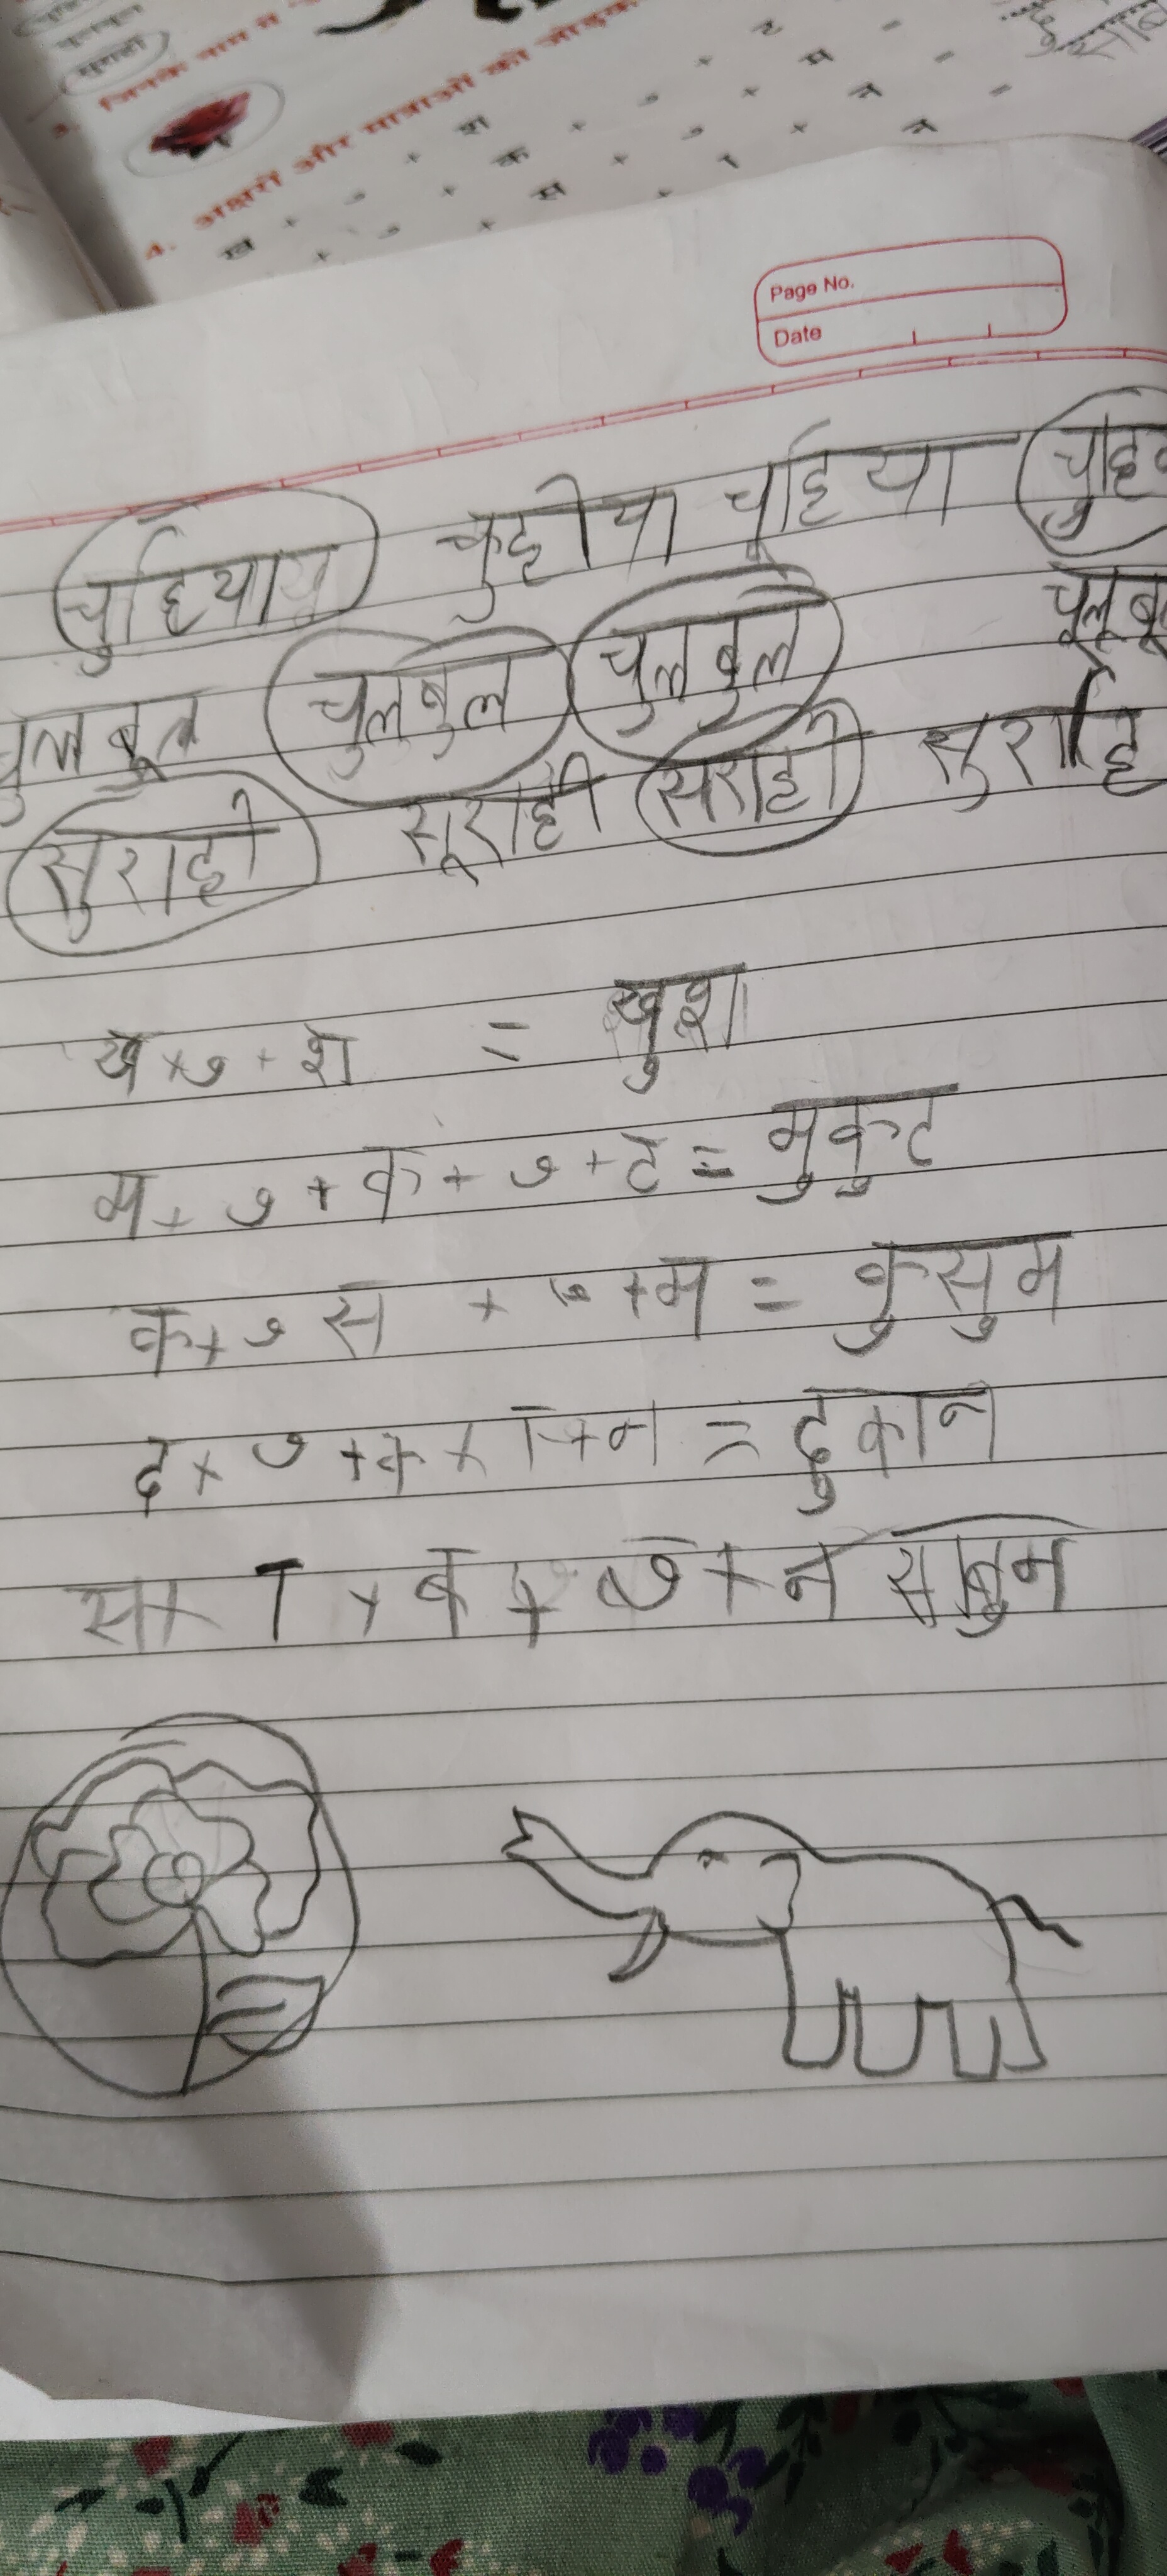 3. जिनके नाम में
4. अक्षरों और मात्राओं को जोड़क
Page No.
Date
चुहिया चुहीया चूहिया
चुलबूल चुलबुल चुलबुल चूलूबू
सुराही सूराही सराही सुराहि
ख + ु + श = खुश
म + ु + क + ु + ट = मुकुट
क + ु स + ु + म = कुसुम
द + ु + क + ा + न = दुकान
स + ा + ब + ु + न साबुन